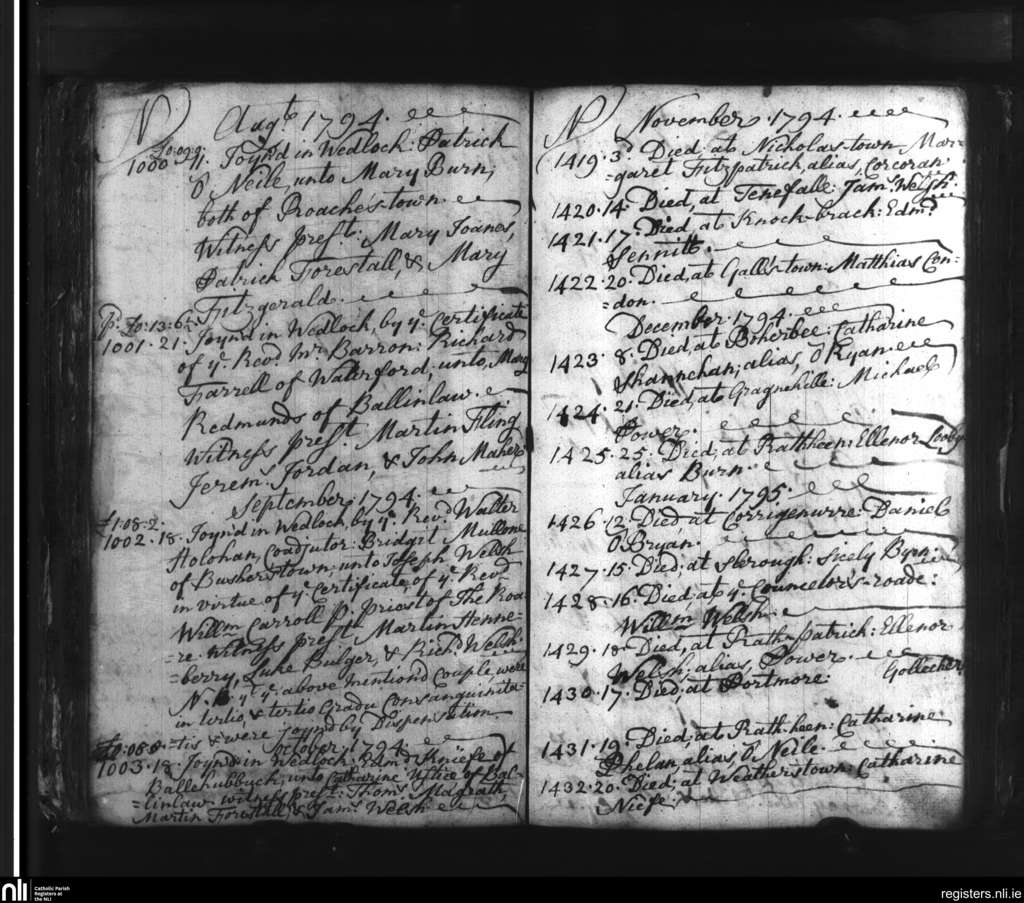 N Augt. 1794.
£0:09:9.
1000 11. Joyn'd in Wedlock: Patrick
O Neile, unto Mary Burn;
both of Roache's-town.
Witness prest. Mary Joanes,
Patrick Forestall, & Mary
Fitzgerald.
P. £0:13:6½
1001. 21. Joyn'd in Wedlock, by ye. Certificate
of ye. Revd. Mr. Barron: Richard
Farrell of Waterford, unto, Mary
Redmunds of Ballinlaw.
Witness prest. Martin Fling
Jerem. Jordan, & John Maher
September, 1794.
£1:08:2.
1002. 18. Joyn'd in Wedlock, by ye. Revd. Walter
Holohan, Coadjutor: Bridgit Mullone
of Busherstown; unto Joseph Welsh
in virtue of ye. Certificate, of ye. Revd.
Willm. Carroll p. priest of The Roa-
=re. Witness prest. Martin Henne-
=berry, Luke Bulger, & Richd. Welsh:
N. yt. ye. above mention'd Couple were
in tertio, & tertio Gradu Consanguinita-
=tis & were Joynd by Dispensation.
October, 1794.
£0:08:8.
1003. 18. Joyn'd in Wedlock: Edmd. Kniefe of
Ballehubbuck; unto Catharine Ustice of Bal-
=linlaw. witness prest: Thoms. Magrath,
Martin Forestall, & Jams. Welsh
N November, 1794.
1419. 3. Died, at Nicholas-town Mar-
=garet Fitzpatrick, alias, Corcoran.
1420. 14. Died, at Tenefalle: Jams. Welsh.
1421. 17. Died, at Knock-brack: Edmd.
Sennitt.
1422. 20. Died, at Galls-town: Matthias Con-
=don.
December, 1794.
1423. 8. Died, at Boherbee: Catharine
Shannchan; alias, O Ryan.
1424. 21. Died, at Gragnehille: Michael
Power.
1425. 25. Died, at Rathkeen: Ellenor Looby
alias Burn.
January, 1795.
1426. 12. Died, at Corrigenurre: Daniel
O'Bryan.
1427. 15. Died, at Slerough: Sicely Byrn:
1428. 16. Died, at ye. Councelor's-roade:
Willm. Welsh.
1429. 18. Died, at Rath-patrick: Ellenor
Welsh, alias, Power.
1430. 17. Died, at Portmore: Gollecher
1431. 19. Died, at Rath-keen: Catharine
Phelan, alias, O Neile.
1432. 20. Died, at Weatherstown: Catharine
Niefe.
nli Catholic Parish
Registers at
the NLI
registers.nli.ie